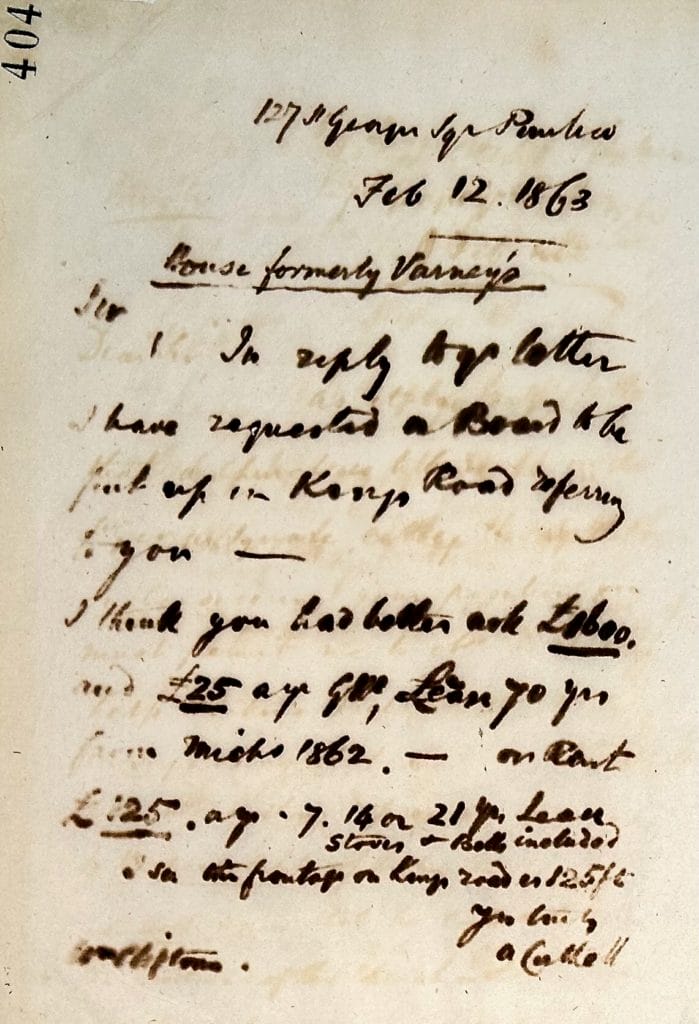 404
127 St Georges Sqr Pimlico
Feb 12. 1863
House formerly Varney's
Sir
In reply to yr letter
I have requested a Board to be
put up in Kings Road referring
to you —
I think you had better ask £1600.
and £25 a yr Gd Rt, Lease 70 yrs
from Michs 1862. — or Rent
£125. a yr. 7. 14 or 21 yrs Lease
Stoves & Bells included
I see the frontage on Kings road is 125 ft
Yrs truly